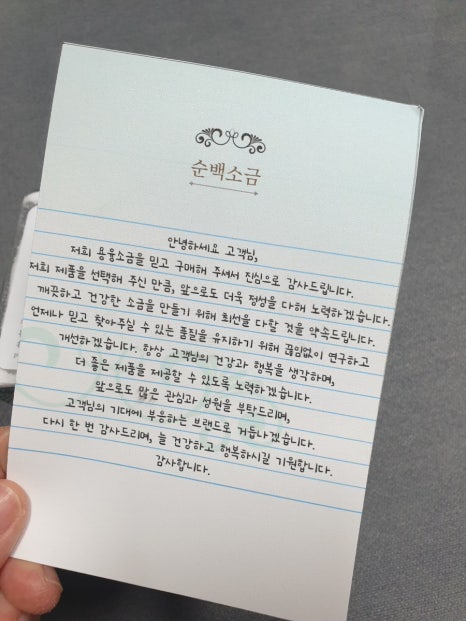 순백소금
안녕하세요 고객님,
저희 용융소금을 믿고 구매해 주셔서 진심으로 감사드립니다.
저희 제품을 선택해 주신 만큼, 앞으로도 더욱 정성을 다해 노력하겠습니다.
깨끗하고 건강한 소금을 만들기 위해 최선을 다할 것을 약속드립니다.
언제나 믿고 찾아주실 수 있는 품질을 유지하기 위해 끊임없이 연구하고
개선하겠습니다. 항상 고객님의 건강과 행복을 생각하며,
더 좋은 제품을 제공할 수 있도록 노력하겠습니다.
앞으로도 많은 관심과 성원을 부탁드리며,
고객님의 기대에 부응하는 브랜드로 거듭나겠습니다.
다시 한 번 감사드리며, 늘 건강하고 행복하시길 기원합니다.
감사합니다.